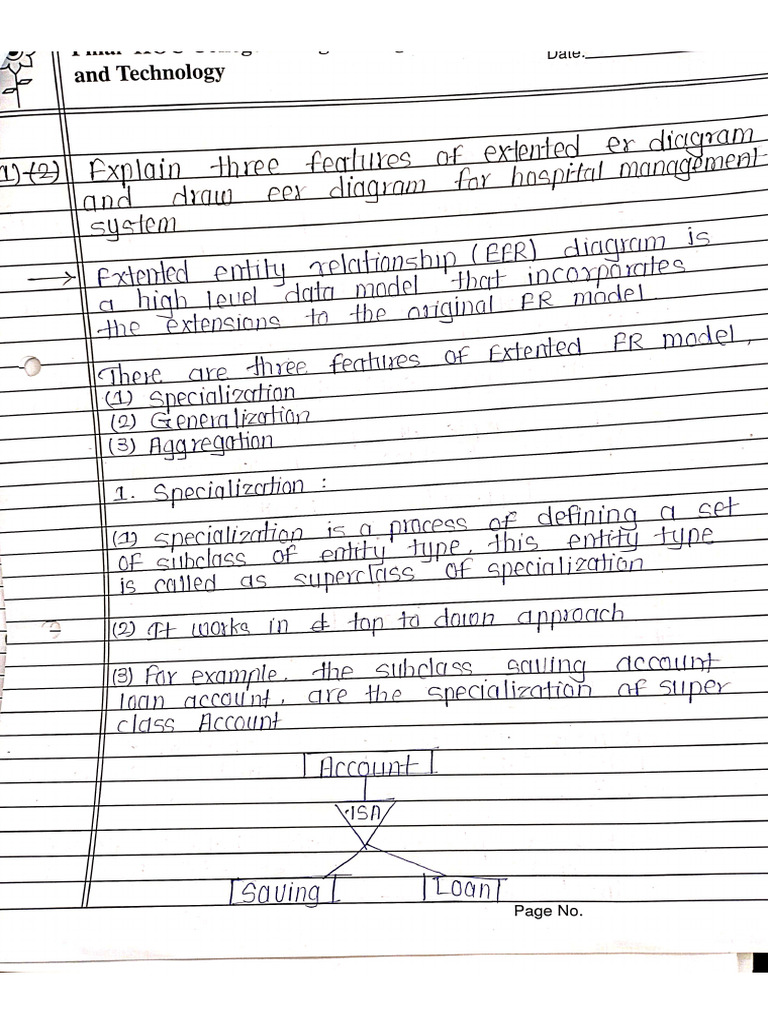 and Technology
Date:
1)-(2) Explain three features of extented er diagram
and draw eer diagram for hospital management
system
→ Extented entity relationship (EER) diagram is
a high level data model that incorporates
the extensions to the original ER model
There are three features of Extented ER model,
(1) Specialization
(2) Generalization
(3) Aggregation
1. Specialization :
(1) specialization is a process of defining a set
of subclass of entity type, this entity type
is called as superclass of specialization
(2) It works in top to down approach
(3) For example. the subclass saving account
loan account, are the specialization of super
class Account
Account
ISA
Saving Loan
Page No.